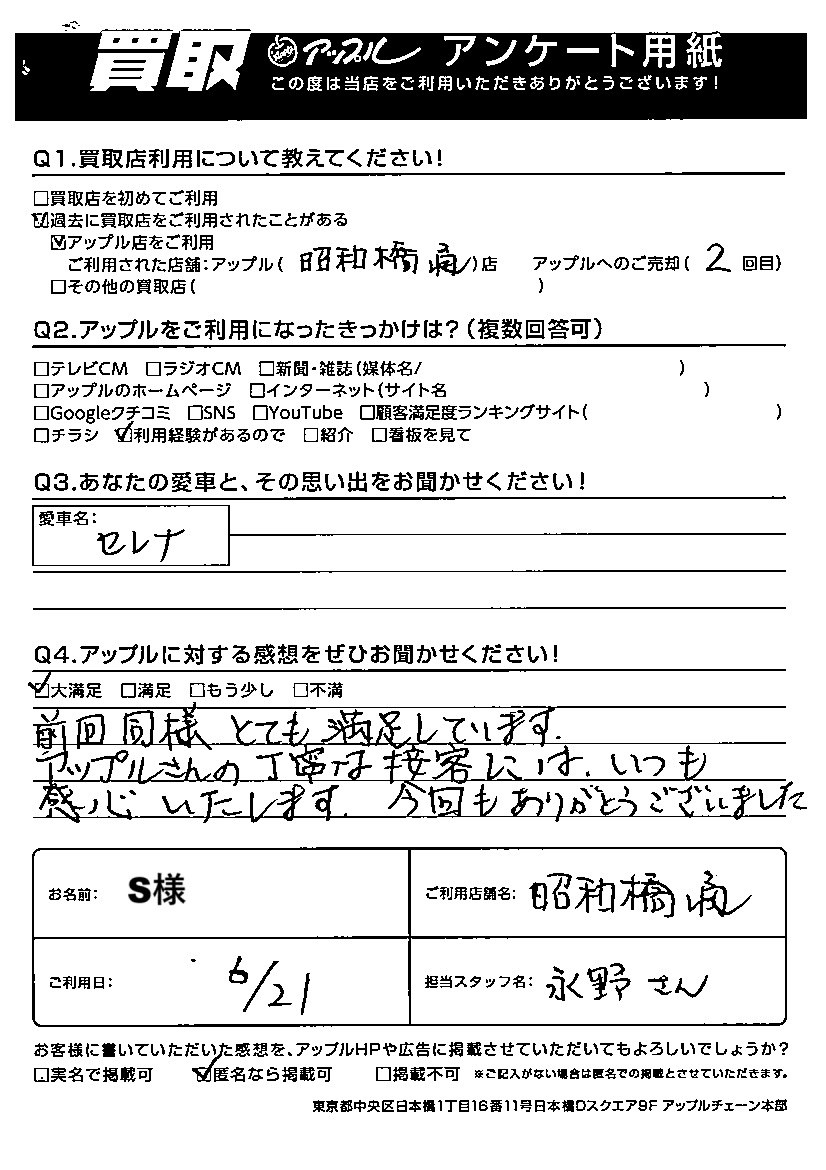 買取 アップル アンケート用紙
この度は当店をご利用いただきありがとうございます!
Q1.買取店利用について教えてください!
□買取店を初めてご利用
☑過去に買取店をご利用されたことがある
☑アップル店をご利用
ご利用された店舗:アップル( 昭和橋通 )店 アップルへのご売却( 2 回目)
□その他の買取店( )
Q2.アップルをご利用になったきっかけは?(複数回答可)
□テレビCM □ラジオCM □新聞・雑誌(媒体名/ )
□アップルのホームページ □インターネット(サイト名 )
□Googleクチコミ □SNS □YouTube □顧客満足度ランキングサイト( )
□チラシ ☑利用経験があるので □紹介 □看板を見て
Q3.あなたの愛車と、その思い出をお聞かせください!
愛車名:
セレナ
Q4.アップルに対する感想をぜひお聞かせください!
☑大満足 □満足 □もう少し □不満
前回同様 とても満足しています.
アップルさんの丁寧な接客には、いつも
感心いたします. 今回もありがとうございました
お名前: S様 ご利用店舗名: 昭和橋通
ご利用日: 6/21 担当スタッフ名: 永野さん
お客様に書いていただいた感想を、アップルHPや広告に掲載させていただいてもよろしいでしょうか?
□実名で掲載可 ☑匿名なら掲載可 □掲載不可 ※ご記入がない場合は匿名での掲載とさせていただきます。
東京都中央区日本橋1丁目16番11号日本橋Dスクエア9F アップルチェーン本部